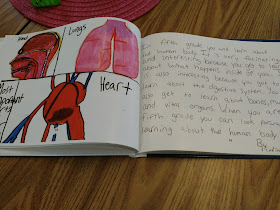 Lungs
Heart
In fifth grade, you will learn about
human body. It is very fascinating
and interesting because you get to learn
about what happens inside of you
also interesting because you get
learn about the digestive system. You
also get to learn about bones,
and vital organs. When you are
fifth grade you can look forward
learning about the human body
By